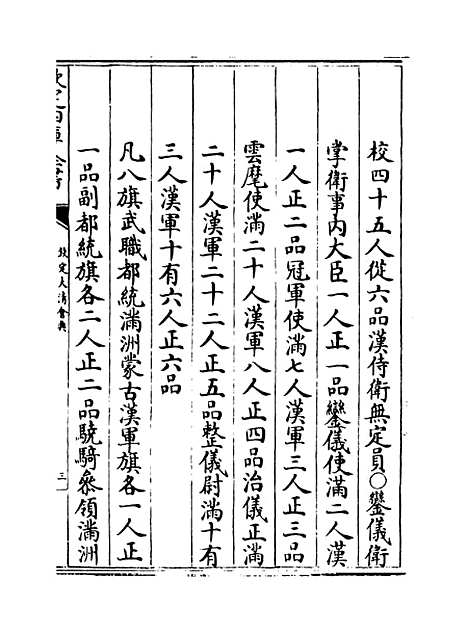 校四十五人從六品漢侍衛無定員○鑾儀衛
掌衛事内大臣一人正一品鑾儀使滿二人漢
一人正二品冠軍使滿七人漢軍三人正三品
雲麾使滿二十人漢軍八人正四品治儀正滿
二十人漢軍二十二人正五品整儀尉滿十有
三人漢軍十有六人正六品
凡八旗武職都統滿洲蒙古漢軍旗各一人正
一品副都統旗各二人正二品驍騎叅領滿洲
欽定四庫全書
欽定大清會典
三